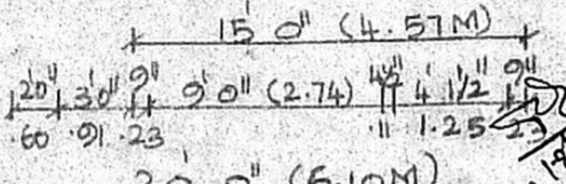 15' 0" (4.57M)
2'0" 3'0" 9" 9'0" (2.74) 4½" 4' 1½" 9"
.60 .91 .23 .11 1.25 .23
20' 0" (6.10M)